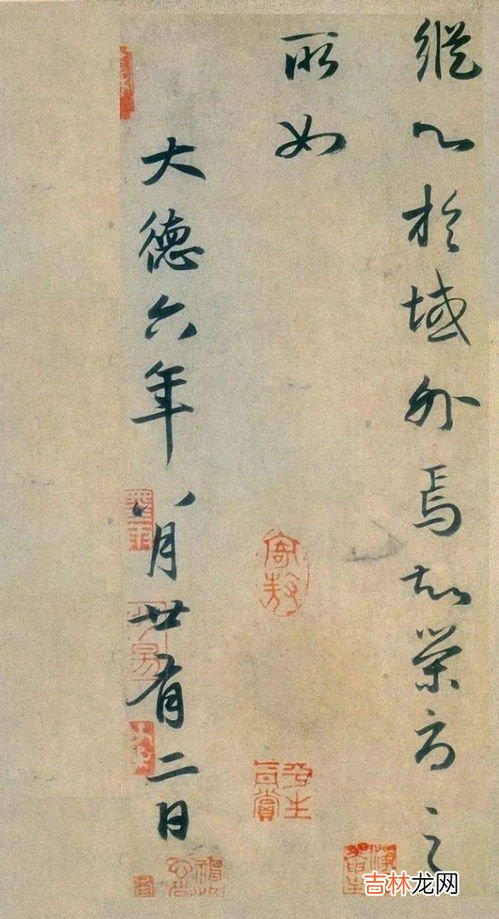 縱心於域外焉知榮辱之
所如
大德六年八月廿有二日
吉林龙网